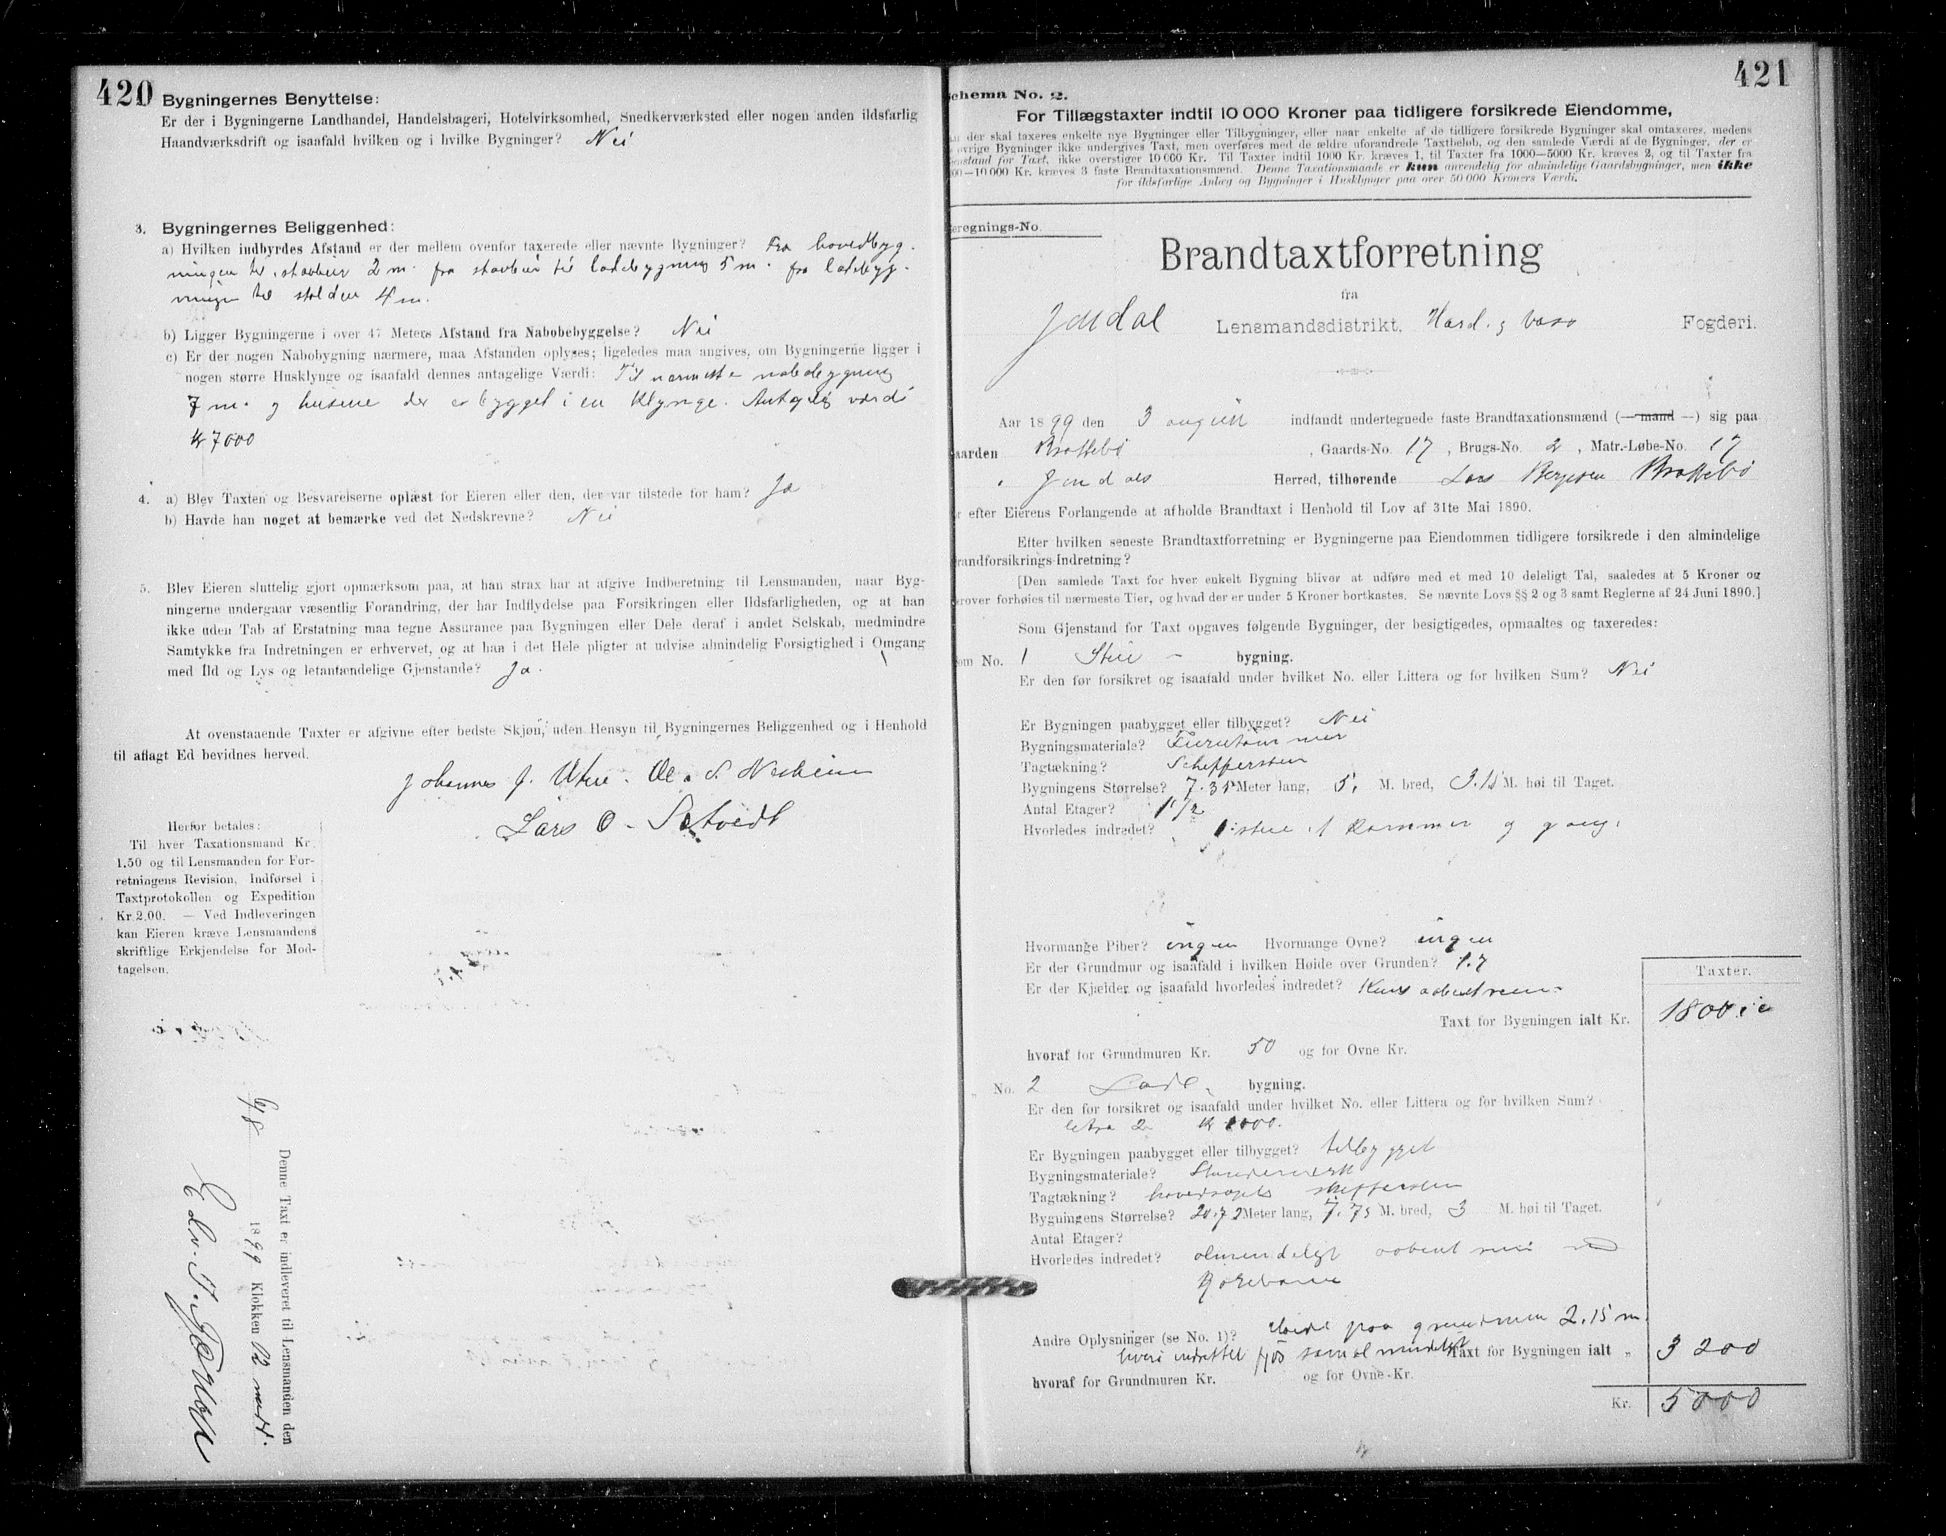 420
Bygningernes Benyttelse:
Er der i Bygningerne Landhandel, Handelsbageri, Hotelvirksomhed, Snedkerværksted eller nogen anden ildsfarlig
Haandværksdrift og isaafald hvilken og i hvilke Bygninger? Nei
3. Bygningernes Beliggenhed:
a) Hvilken indbyrdes Afstand er der mellem ovenfor taxerede eller nævnte Bygninger? Fra hovedbyg-
ningen til stabbur 2 m. fra stabbur til ladebygning 5 m. fra ladebyg-
ningen til stalden 4 m.
b) Ligger Bygningerne i over 47 Meters Afstand fra Nabobebyggelse? Nei
c) Er der nogen Nabobygning nærmere, maa Afstanden oplyses; ligeledes maa angives, om Bygningerne ligger i
nogen større Husklynge og isaafald dennes antagelige Værdi: Til nærmeste nabobygning
7 m. og husene der er bygget i en klynge. Antagelig værdi
kr 7000
4. a) Blev Taxten og Besvarelserne oplæst for Eieren eller den, der var tilstede for ham? Ja
b) Havde han noget at bemærke ved det Nedskrevne? Nei
5. Blev Eieren sluttelig gjort opmærksom paa, at han strax har at afgive Indberetning til Lensmanden, naar Byg-
ningerne undergaar væsentlig Forandring, der har Indflydelse paa Forsikringen eller Ildsfarligheden, og at han
ikke uden Tab af Erstatning maa tegne Assurance paa Bygningen eller Dele deraf i andet Selskab, medmindre
Samtykke fra Indretningen er erhvervet, og at han i det Hele pligter at udvise almindelig Forsigtighed i Omgang
med Ild og Lys og letantændelige Gjenstande? Ja.
At ovenstaaende Taxter er afgivne efter bedste Skjøn, uden Hensyn til Bygningernes Beliggenhed og i Henhold
til aflagt Ed bevidnes herved.
Johannes J. Utne. Ole S Nesheim
Lars O. Selvedt
Herfor betales:
Til hver Taxationsmand Kr.
1.50 og til Lensmanden for For-
retningens Revision, Indførsel i
Taxtprotokollen og Expedition
Kr 2.00. — Ved Indleveringen
kan Eieren kræve Lensmandens
skriftlige Erkjendelse for Mod-
tagelsen.
Denne Taxt er indleveret til Lensmanden den
6/8 1899 Klokken 12 midd.
421
Schema No. 2.
For Tillægstaxter indtil 10 000 Kroner paa tidligere forsikrede Eiendomme,
der skal taxeres enkelte nye Bygninger eller Tilbygninger, eller naar enkelte af de tidligere forsikrede Bygninger skal omtaxeres, medens
øvrige Bygninger ikke undergives Taxt, men overføres med de ældre uforandrede Taxtbeløb, og den samlede Værdi af de Bygninger, der er
Gjenstand for Taxt, ikke overstiger 10 000 Kr. Til Taxter indtil 1000 Kr. kræves 1, til Taxter fra 1000—5000 Kr. kræves 2, og til Taxter fra
5000—10 000 Kr. kræves 3 faste Brandtaxationsmænd. Denne Taxationsmaade er kun anvendelig for almindelige Gaardsbygninger, men ikke
for ildsfarlige Anlæg og Bygninger i Husklynger paa over 50 000 Kroners Værdi.
Beregnings-No.
Brandtaxtforretning
fra
Jondal Lensmandsdistrikt, Hard. og Voss Fogderi.
Aar 1899 den 3 august indfandt undertegnede faste Brandtaxationsmænd (— mand —) sig paa
Gaarden Brattebø, Gaards-No. 17, Brugs-No. 2, Matr.-Løbe-No. 17
i Jondals Herred, tilhørende Lars Bergesen Brattebø
for efter Eierens Forlangende at afholde Brandtaxt i Henhold til Lov af 31te Mai 1890.
Efter hvilken seneste Brandtaxtforretning er Bygningerne paa Eiendommen tidligere forsikrede i den almindelige
Brandforsikrings-Indretning?
[Den samlede Taxt for hver enkelt Bygning bliver at udføre med et med 10 deleligt Tal, saaledes at 5 Kroner og
derover forhøies til nærmeste Tier, og hvad der er under 5 Kroner bortkastes. Se nævnte Lovs §§ 2 og 3 samt Reglerne af 24 Juni 1890.]
Som Gjenstand for Taxt opgaves følgende Bygninger, der besigtigedes, opmaaltes og taxeredes:
Som No. 1 Stue - bygning.
Er den før forsikret og isaafald under hvilket No. eller Littera og for hvilken Sum? Nei
Er Bygningen paabygget eller tilbygget? Nei
Bygningsmateriale? Furutømmer
Tagtækning? Skiffersten
Bygningens Størrelse? 7.35 Meter lang, 5. M. bred, 3.15 M. høi til Taget.
Antal Etager? 1 1/2
Hvorledes indredet? 1 stue 1 kammer og gang.
Hvormange Piber? ingen Hvormange Ovne? ingen
Er der Grundmur og isaafald i hvilken Høide over Grunden? 1.7
Er der Kjælder og isaafald hvorledes indredet? Kuns aabent rum
Taxter.
Taxt for Bygningen ialt Kr. 1800
hvoraf for Grundmuren Kr. 50 og for Ovne Kr.
No. 2 Lade- bygning.
Er den før forsikret og isaafald under hvilket No. eller Littera og for hvilken Sum?
letra 2 kr 1000.
Er Bygningen paabygget eller tilbygget? tilbygget
Bygningsmateriale? Standerverk
Tagtækning? skiffersten
Bygningens Størrelse? 20.72 Meter lang, 7.75 M. bred, 3 M. høi til Taget.
Antal Etager?
Hvorledes indredet? almendeligt aabent rum
Andre Oplysninger (se No. 1)? høide paa grundmuren 2.15 m.
hvori indrettet fjøs
Taxt for Bygningen ialt „ 3 200
hvoraf for Grundmuren Kr. og for Ovne Kr.
Kr. 5000